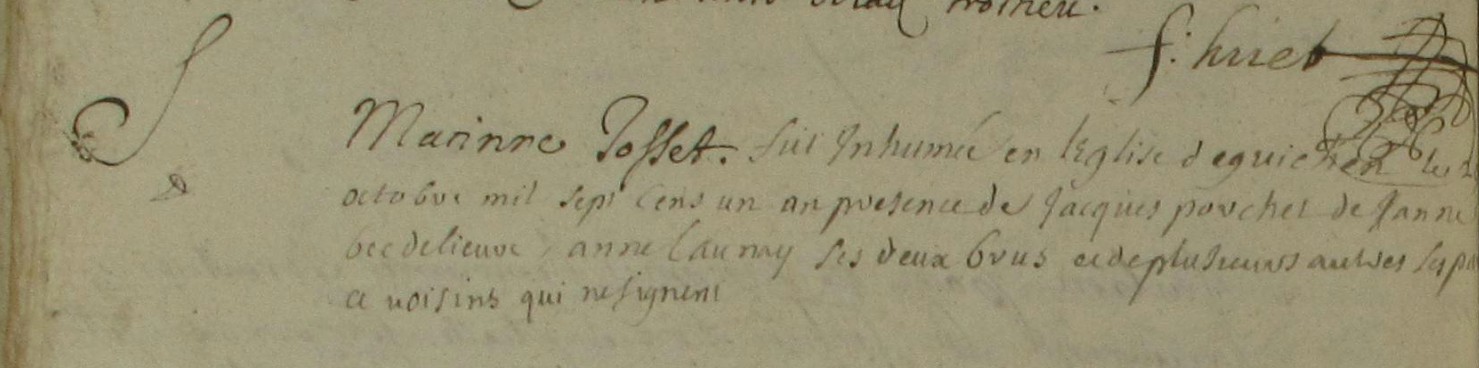 f: huet
S
Marinne Josset. fut Inhumée en lEglise deguichen le 2
octobre mil sept cens un an presence de Jacques porcher de Janne
becdelieuve, anne launay ses deux brus et de plusieurs autres
et voisins qui ne signent